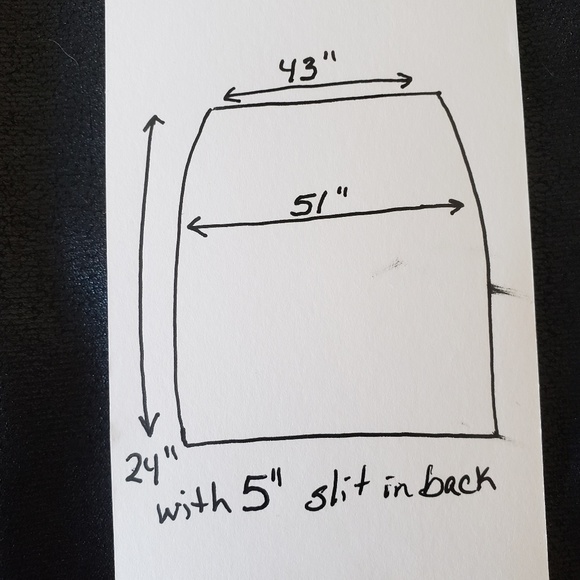 43"
51"
24"
with 5" slit in back